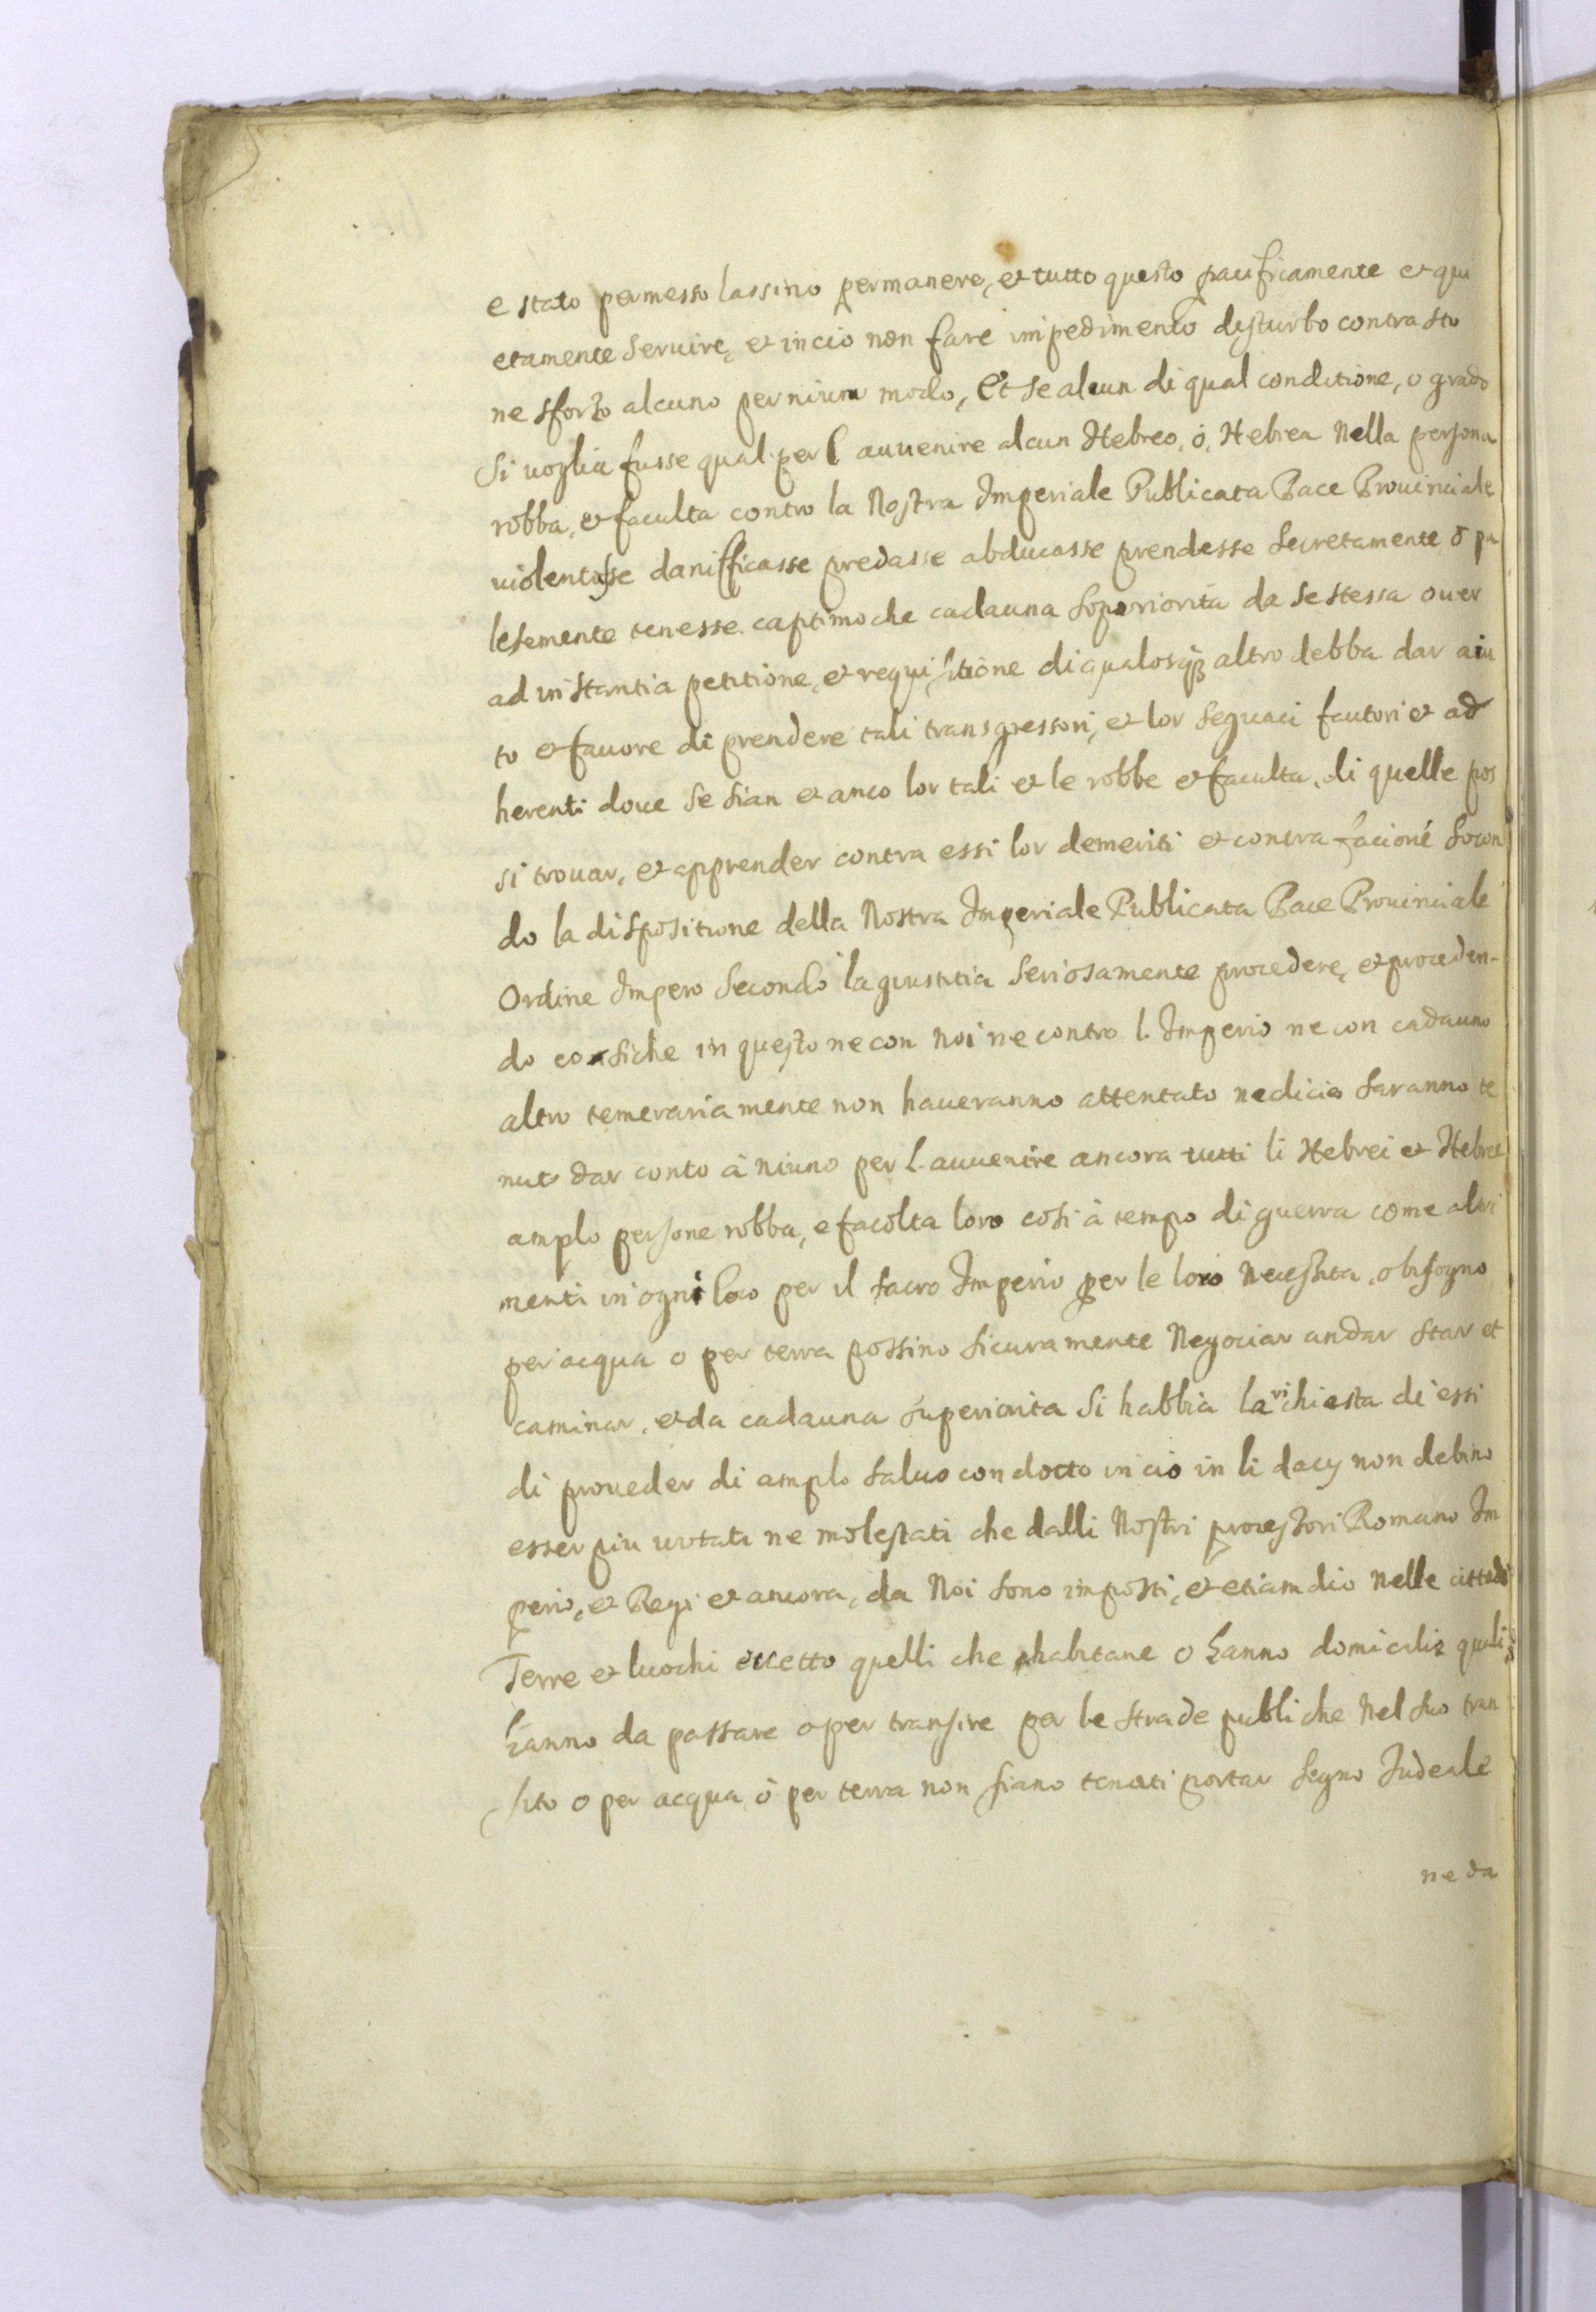 e stato permesso lassino permanere, et tutto questo pacificamente et qui
etamente servire, et in cio non fare impedimento desturbo contrasto
ne sforzo alcuno per niun modo, Et se alcun di qual conditione, o grado
si voglia fusse qual per l auuenire alcun Hebreo, ò, Hebrea Nella persona
robba, et faculta contro la Nostra Imperiale Publicata Pace Prouinciale
uiolentasse danifficasse predasse abducasse prendesse secretamente ò pa
lesemente tenesse. captimo che cadauna soperiorità da se stessa ouer
ad instantia petitione, et requisitione di qualosq3 altro debba dar aiu
to et fauore di prendere tali transgressori, et lor seguaci fautori et ad
herenti doue se sian et anco lor tali et le robbe et faculta, di quelle pos
si trouar, et apprender contra essi lor demeriti et contrafacione secon
do la dispositione della Nostra Imperiale Publicata Pace Prouinciale
Ordine Impero secondo la giustitia seriosamente procedere, et proceden-
do cosiche in questo ne con Noi ne contro l. Imperio ne con cadauno
altro temerariamente non haueranno attentato ne dicio saranno te
nuti dar conto à niuno per l. auuenire ancora tutti li Hebrei et Hebree
amplo persone robba, e facolta loro cosi à tempo di guerra come altri
menti in ogni loco per il sacro Imperio per le loro necessita, o bisogno
per acqua o per terra possino sicuramente Negociar andar star et
caminar, et da cadauna superiorita si habbia la richiesta di essi
di proueder di amplo saluo condotto in cio in li dacij non debino
esser piu urtati ne molestati che dalli Nostri processori Romano Im
perio, et Regi et ancora, da Noi sono imposti, et etiamdio Nelle cittadi
Terre et luochi eccetto quelli che habitane o hanno domicilio quali
hanno da passare o per transire per le strade publiche Nel suo tran
sito o per acqua, ò per terra non siano tenuti portar segno Judeale
ne da